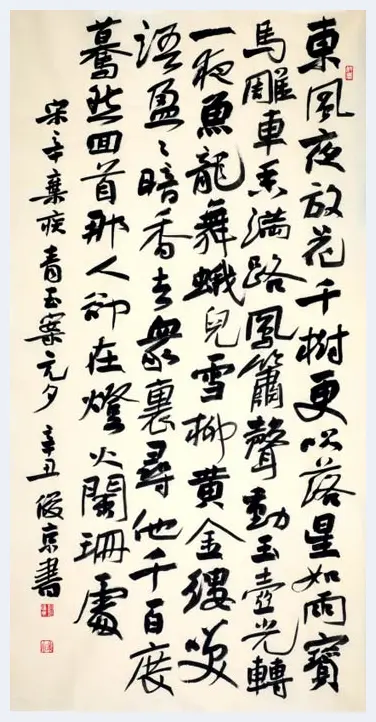 東風夜放花千樹更吹落星如雨寶
馬雕車香滿路鳳簫聲動玉壺光轉
一夜魚龍舞蛾兒雪柳黃金縷笑
語盈〻暗香去衆裏尋他千百度
驀然回首那人卻在燈火闌珊處
宋辛棄疾青玉案元夕 辛丑 京書